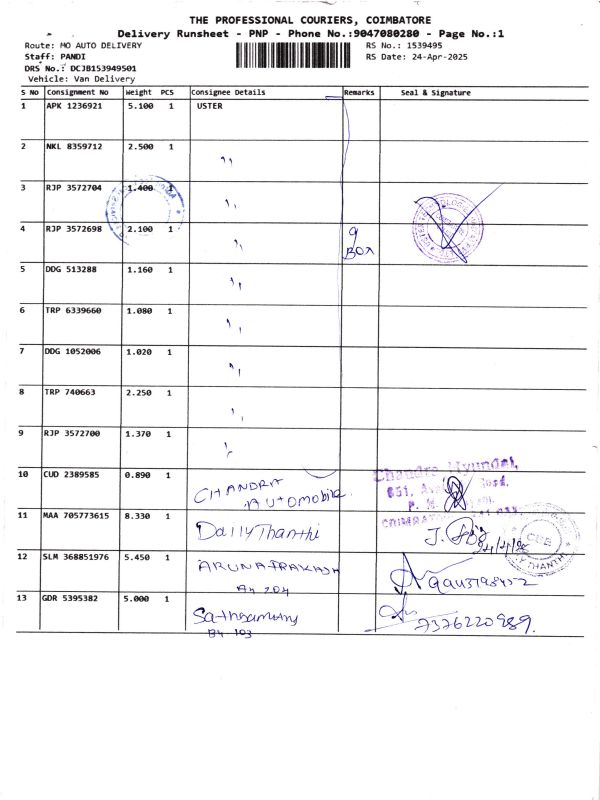 THE PROFESSIONAL COURIERS, COIMBATORE
Delivery Runsheet - PNP - Phone No.:9047080280 - Page No.:1
Route: MO AUTO DELIVERY RS No.: 1539495
Staff: PANDI RS Date: 24-Apr-2025
DRS No.: DCJB153949501
Vehicle: Van Delivery
S No Consignment No Weight PCS Consignee Details Remarks Seal & Signature
1 APK 1236921 5.100 1 USTER
2 NKL 8359712 2.500 1 "
3 RJP 3572704 1.400 1 "
4 RJP 3572698 2.100 1 " 9 BOX
5 DDG 513288 1.160 1 "
6 TRP 6339660 1.080 1 "
7 DDG 1052006 1.020 1 "
8 TRP 740663 2.250 1 "
9 RJP 3572700 1.370 1 "
10 CUD 2389585 0.890 1 CHANDRA AUTOMOBILE Chandra Hyundai,
651,
11 MAA 705773615 8.330 1 Daily Thanthi J.
12 SLM 368851976 5.450 1 ARUNA PRAKASH
A4 204
13 GDR 5395382 5.000 1 7376220989.
B4 103